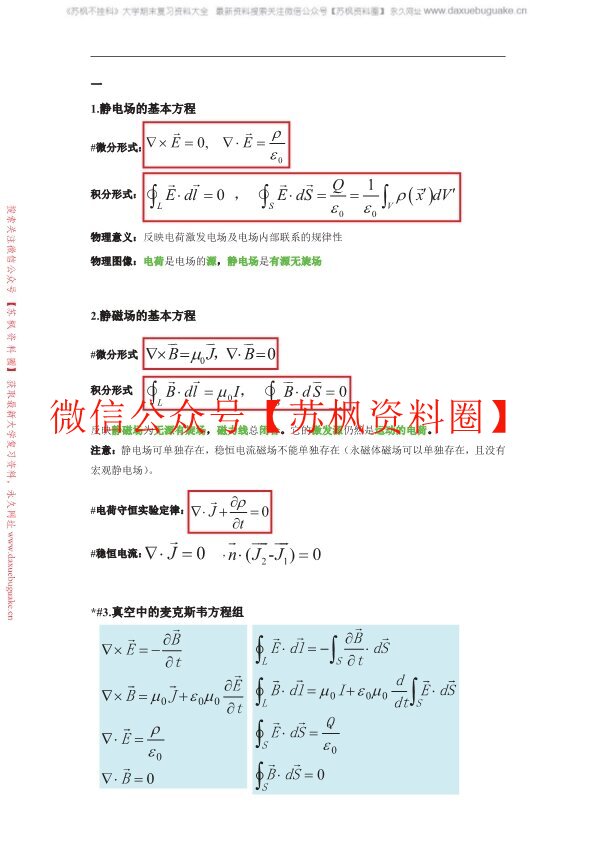 《苏枫不挂科》大学期末复习资料大全 最新资料搜索关注微信公众号【苏枫资料圈】 永久网址 www.daxuebuguake.cn
一
1.静电场的基本方程
#微分形式: ∇×E⃗ = 0, ∇·E⃗ = ρ/ε₀
积分形式: ∮_L E⃗·dl⃗ = 0 , ∮_S E⃗·dS⃗ = Q/ε₀ = 1/ε₀ ∫_V ρ(x⃗')dV'
物理意义: 反映电荷激发电场及电场内部联系的规律性
物理图像: 电荷是电场的源，静电场是有源无旋场
2.静磁场的基本方程
#微分形式 ∇×B⃗=μ₀J⃗, ∇·B⃗=0
积分形式 ∮_L B⃗·dl⃗ = μ₀I, ∮ B⃗·dS⃗ = 0
微信公众号【苏枫资料圈】
反映静磁场为无源有旋场，磁力线总闭合。它的激发源仍然是运动的电荷。
注意: 静电场可单独存在，稳恒电流磁场不能单独存在（永磁体磁场可以单独存在，且没有
宏观静电场）。
#电荷守恒实验定律: ∇·J⃗+∂ρ/∂t=0
#稳恒电流: ∇·J⃗ = 0 ·n⃗·(J⃗₂-J⃗₁) = 0
*#3.真空中的麦克斯韦方程组
∇×E⃗ = -∂B⃗/∂t ∮_L E⃗·dl⃗ = -∫_S ∂B⃗/∂t·dS⃗
∇×B⃗ = μ₀J⃗+ε₀μ₀ ∂E⃗/∂t ∮_L B⃗·dl⃗ = μ₀I+ε₀μ₀ d/dt ∫_S E⃗·dS⃗
∇·E⃗ = ρ/ε₀ ∮_S E⃗·dS⃗ = Q/ε₀
∇·B⃗ = 0 ∮_S B⃗·dS⃗ = 0
搜索关注微信公众号【苏枫资料圈】获取最新大学复习资料，永久网址 www.daxuebuguake.cn